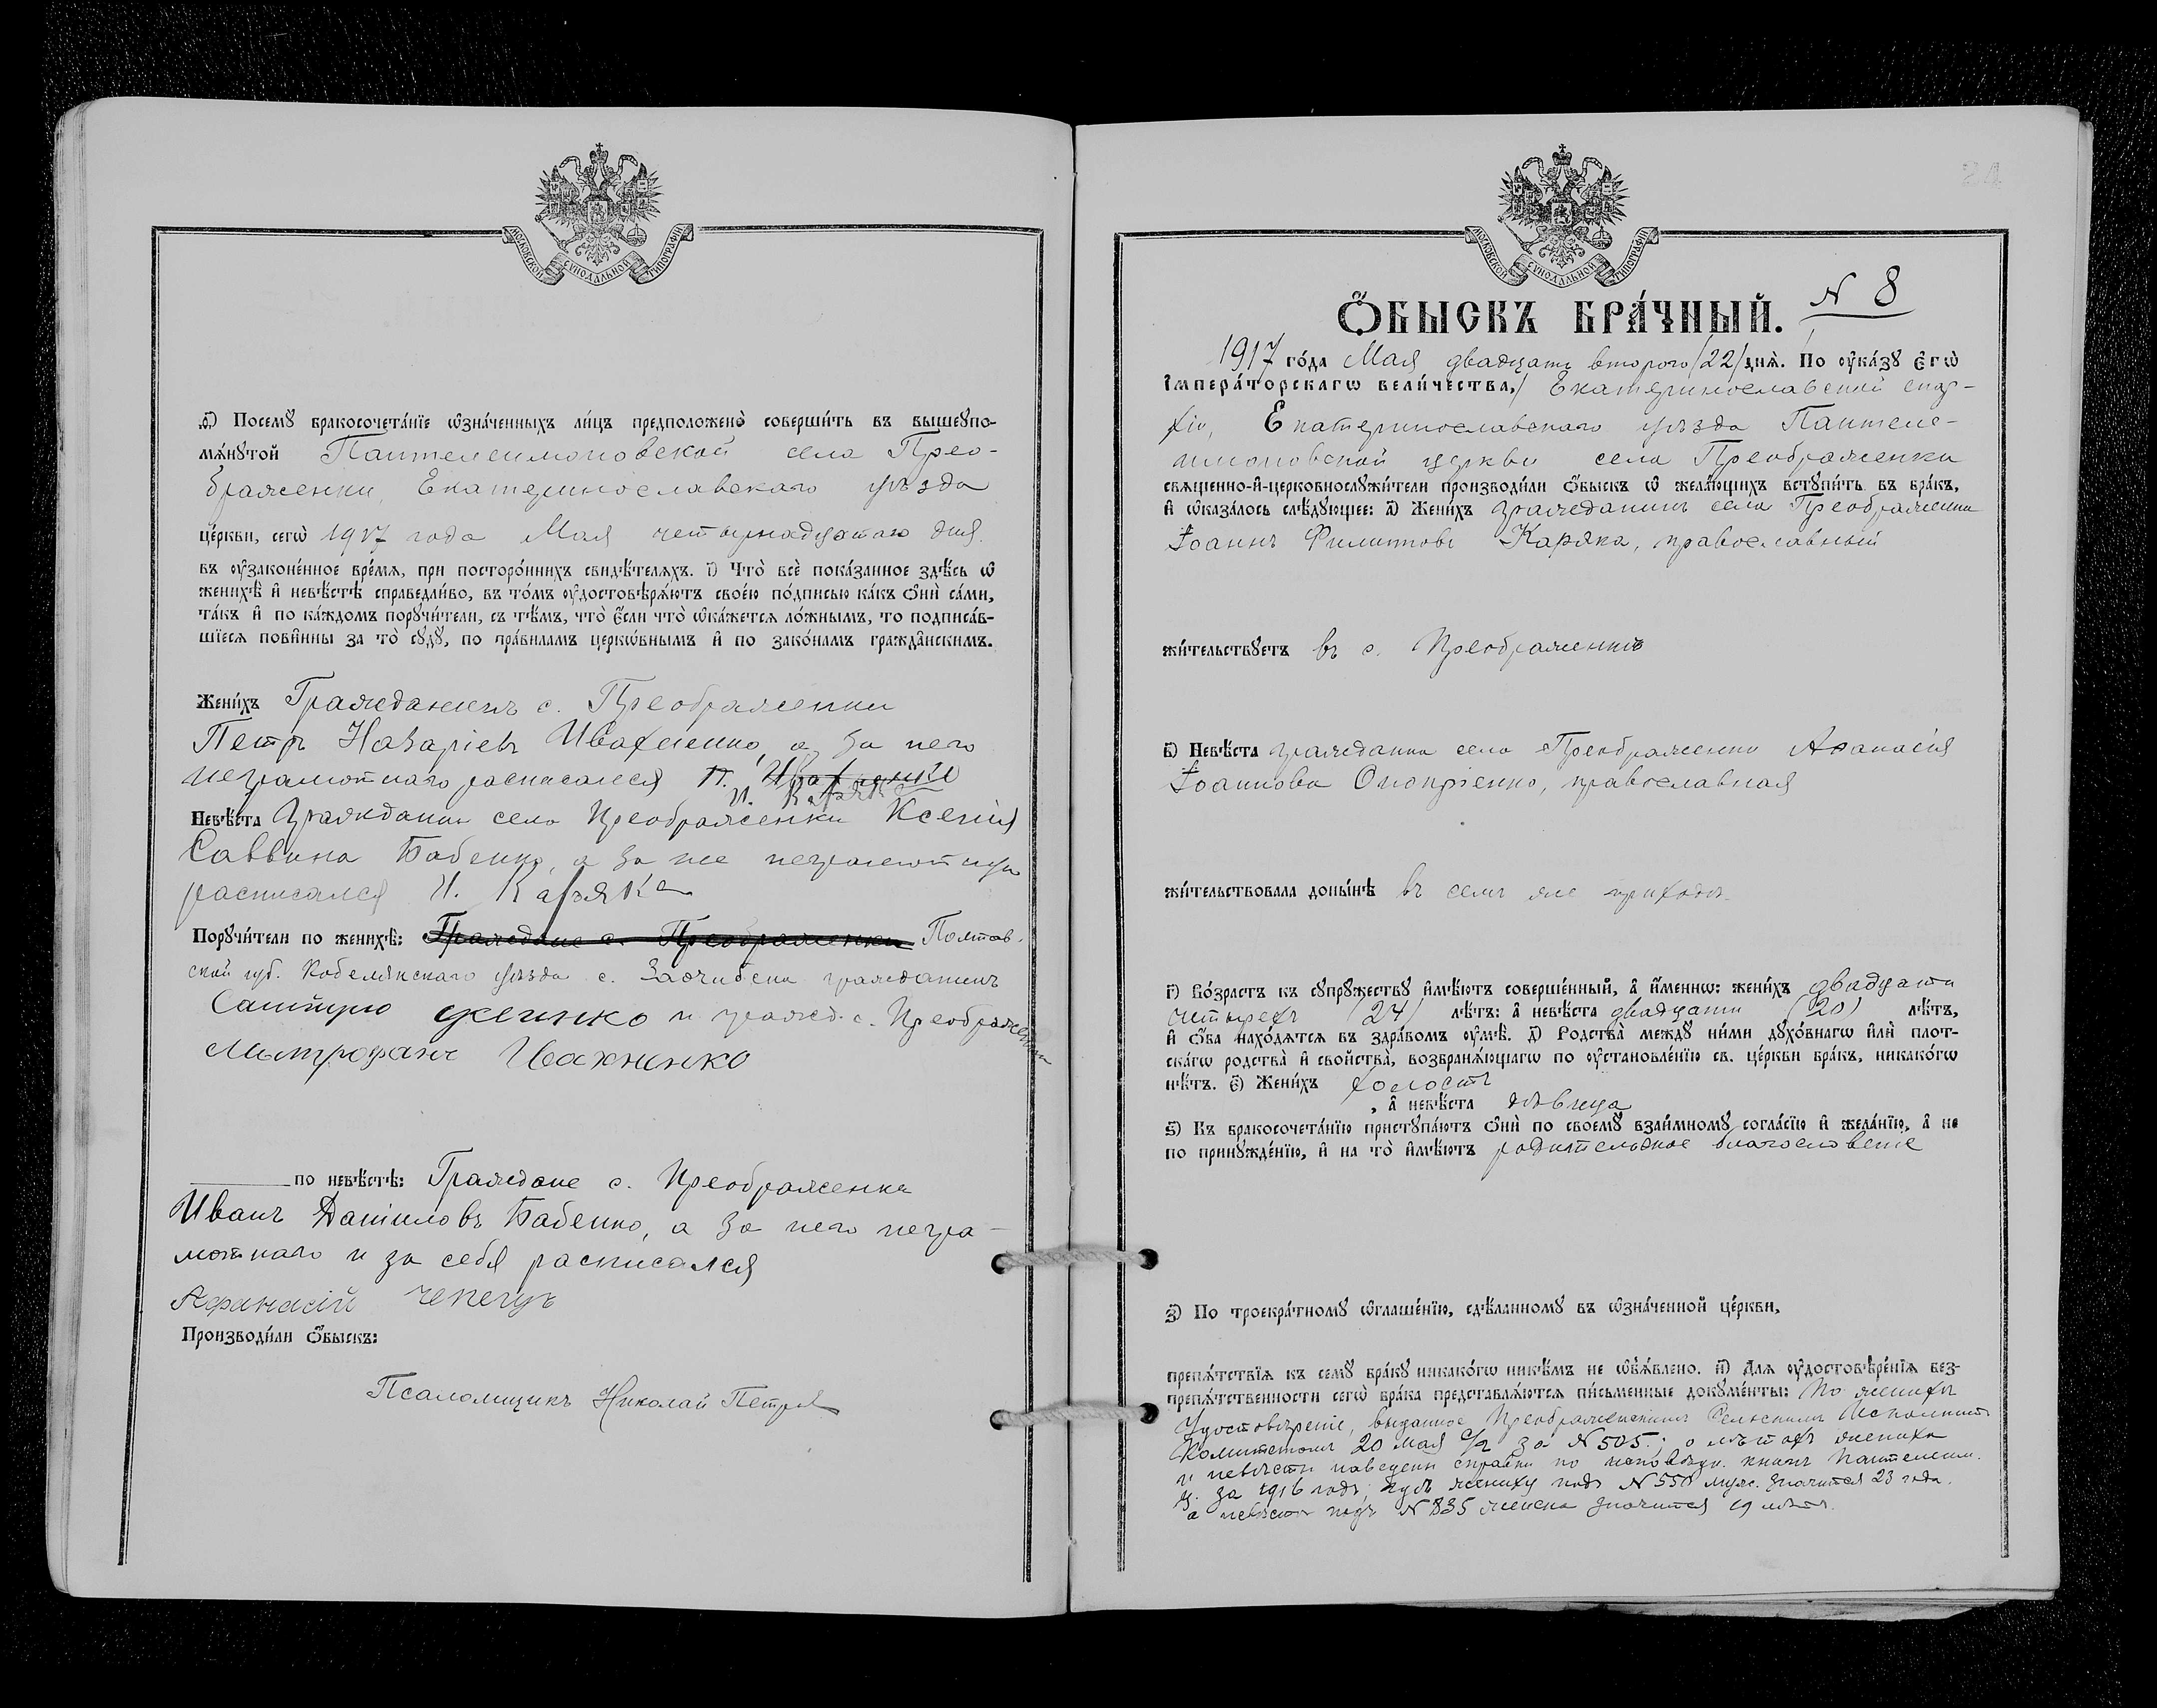 МОСКОВСКОЙ СѴНОДАЛЬНОЙ ТИПОГРАФІИ
ѳ҃) Посемꙋ бракосочета́нїе ѡзна́ченныхъ ли́цъ предположено̀ соверши́ть въ вышеꙋпо-
мѧ́нꙋтой Пантелеимоновской села Прео-
браженки, Екатеринославскаго уѣзда
це́ркви, сегѡ̀ 1917 года Мая четырнадцатаго дня.
въ ᲂу҆зако́ненное вре́мѧ, при посторо́ннихъ свидѣ́телѧхъ. і҃) Что̀ всѐ пока́занное здѣ́сь ѡ҆
женихѣ̀ и҆ невѣ́стѣ справедли́во, въ то́мъ ᲂу҆достовѣрѧ́ютъ свое́ю по́дписью ка́къ ѻ҆нѝ са́ми,
та́къ и҆ по ка́ждомъ порꙋчи́тели, съ тѣ́мъ, что̀ є҆́сли что̀ ѡ҆ка́жетсѧ ло́жнымъ, то подписа́в-
шїесѧ пови́нны за то̀ сꙋдꙋ̀, по пра́виламъ церкѡ́внымъ и҆ по зако́намъ гражда́нскимъ.
Жени́хъ Гражданинъ с. Преображенки
Петръ Назаріевъ Ивахненко, а за него
неграмотнаго расписался П. Ивахненко
И. Каряка
Невѣ́ста Гражданка села Преображенки Ксенія
Саввина Бабенко, а за нее неграмотную
расписался И. Каряка
Порꙋчи́тели по женихѣ̀: Граждане с. Преображенки Полтав-
ской губ. Кобелякскаго уѣзда с. гражданинъ
и гражд. с. Преображенки
Митрофанъ Ивахненко
по невѣ́стѣ: Граждане с. Преображенки
Иванъ Даніиловъ Бабенко, а за него негра-
мотнаго и за себя расписался
Афанасій Чепецъ
Производи́ли ѻ҆́быскъ:
Псаломщикъ Николай Петря
МОСКОВСКОЙ СѴНОДАЛЬНОЙ ТИПОГРАФІИ
N 8
Ѻ҆́БЫСКЪ БРА́ЧНЫЙ.
1917 го́да Мая двадцать второго /22/ днѧ̀. По ᲂу҆ка́зꙋ Є҆гѡ̀
І҆мпера́торскагѡ вели́чества, Екатеринославской епар-
хіи, Екатеринославскаго уѣзда Пантеле-
имоновской церкви села Преображенки
свѧще́нно-и҆-церковнослꙋжи́тели производи́ли ѻ҆́быскъ ѡ҆ жела́ющихъ встꙋпи́ть въ бра́къ,
и҆ ѡ҆каза́лось слѣ́дꙋющее: а҃) Жени́хъ гражданинъ села Преображенки
Іоаннъ Филипповъ Каряка, православный
жи́тельствꙋетъ въ с. Преображенкѣ
в҃) Невѣ́ста гражданка села Преображенки Аѳанасія
Іоаннова Оноприенко, православная
жи́тельствовала доны́нѣ въ семъ же приходѣ.
г҃) Во́зрастъ къ сꙋпрꙋ́жествꙋ и҆мѣ́ютъ соверше́нный, а҆ и҆́меннѡ: жени́хъ двадцати
четырехъ (24) лѣ́тъ: а҆ невѣ́ста двадцати (20) лѣ́тъ,
и҆ ѻ҆́ба нахо́дѧтсѧ въ здра́вомъ ᲂу҆мѣ̀. д҃) Родства̀ междꙋ ни́ми дꙋхо́внагѡ и҆лѝ плот-
ска́гѡ родства̀ и҆ сво́йства̀, возбранѧ́ющагѡ по ᲂу҆становле́нїю св. це́ркви бра́къ, никако́гѡ
нѣ́тъ. є҃) Жени́хъ холостъ
, а҆ невѣ́ста дѣвица
ѕ҃) Къ бракосочета́нїю пристꙋпа́ютъ ѻ҆нѝ по своемꙋ̀ взаи́мномꙋ согла́сїю и҆ жела́нїю, а҆ не
по принꙋжде́нїю, и҆ на то̀ и҆мѣ́ютъ родительское благословеніе
з҃) По троекра́тномꙋ ѡ҆глаше́нїю, сдѣ́ланномꙋ въ ѡ҆зна́ченной це́ркви,
препѧ́тствїѧ къ семꙋ̀ бра́кꙋ никако́гѡ никѣ́мъ не ѡ҆б̾ѧ́влено. и҃) Длѧ ᲂу҆достовѣре́нїѧ без-
препѧ́тственности сегѡ̀ бра́ка представлѧ́ютсѧ пи́сьменные докꙋме́нты: По женихѣ
Удостовѣреніе, выданное Преображенскимъ Сельскимъ Исполнит.
Комитетомъ 20 мая с/г за N 505.; о лѣтахъ жениха
и невѣсты наведены справки по исповѣдн. книгѣ Пантелеим.
ц. за 1916 годъ, гдѣ жениху подъ N 550 муж. значится 23 года,
а невѣстѣ подъ N 835 женска значится 19 лѣтъ.